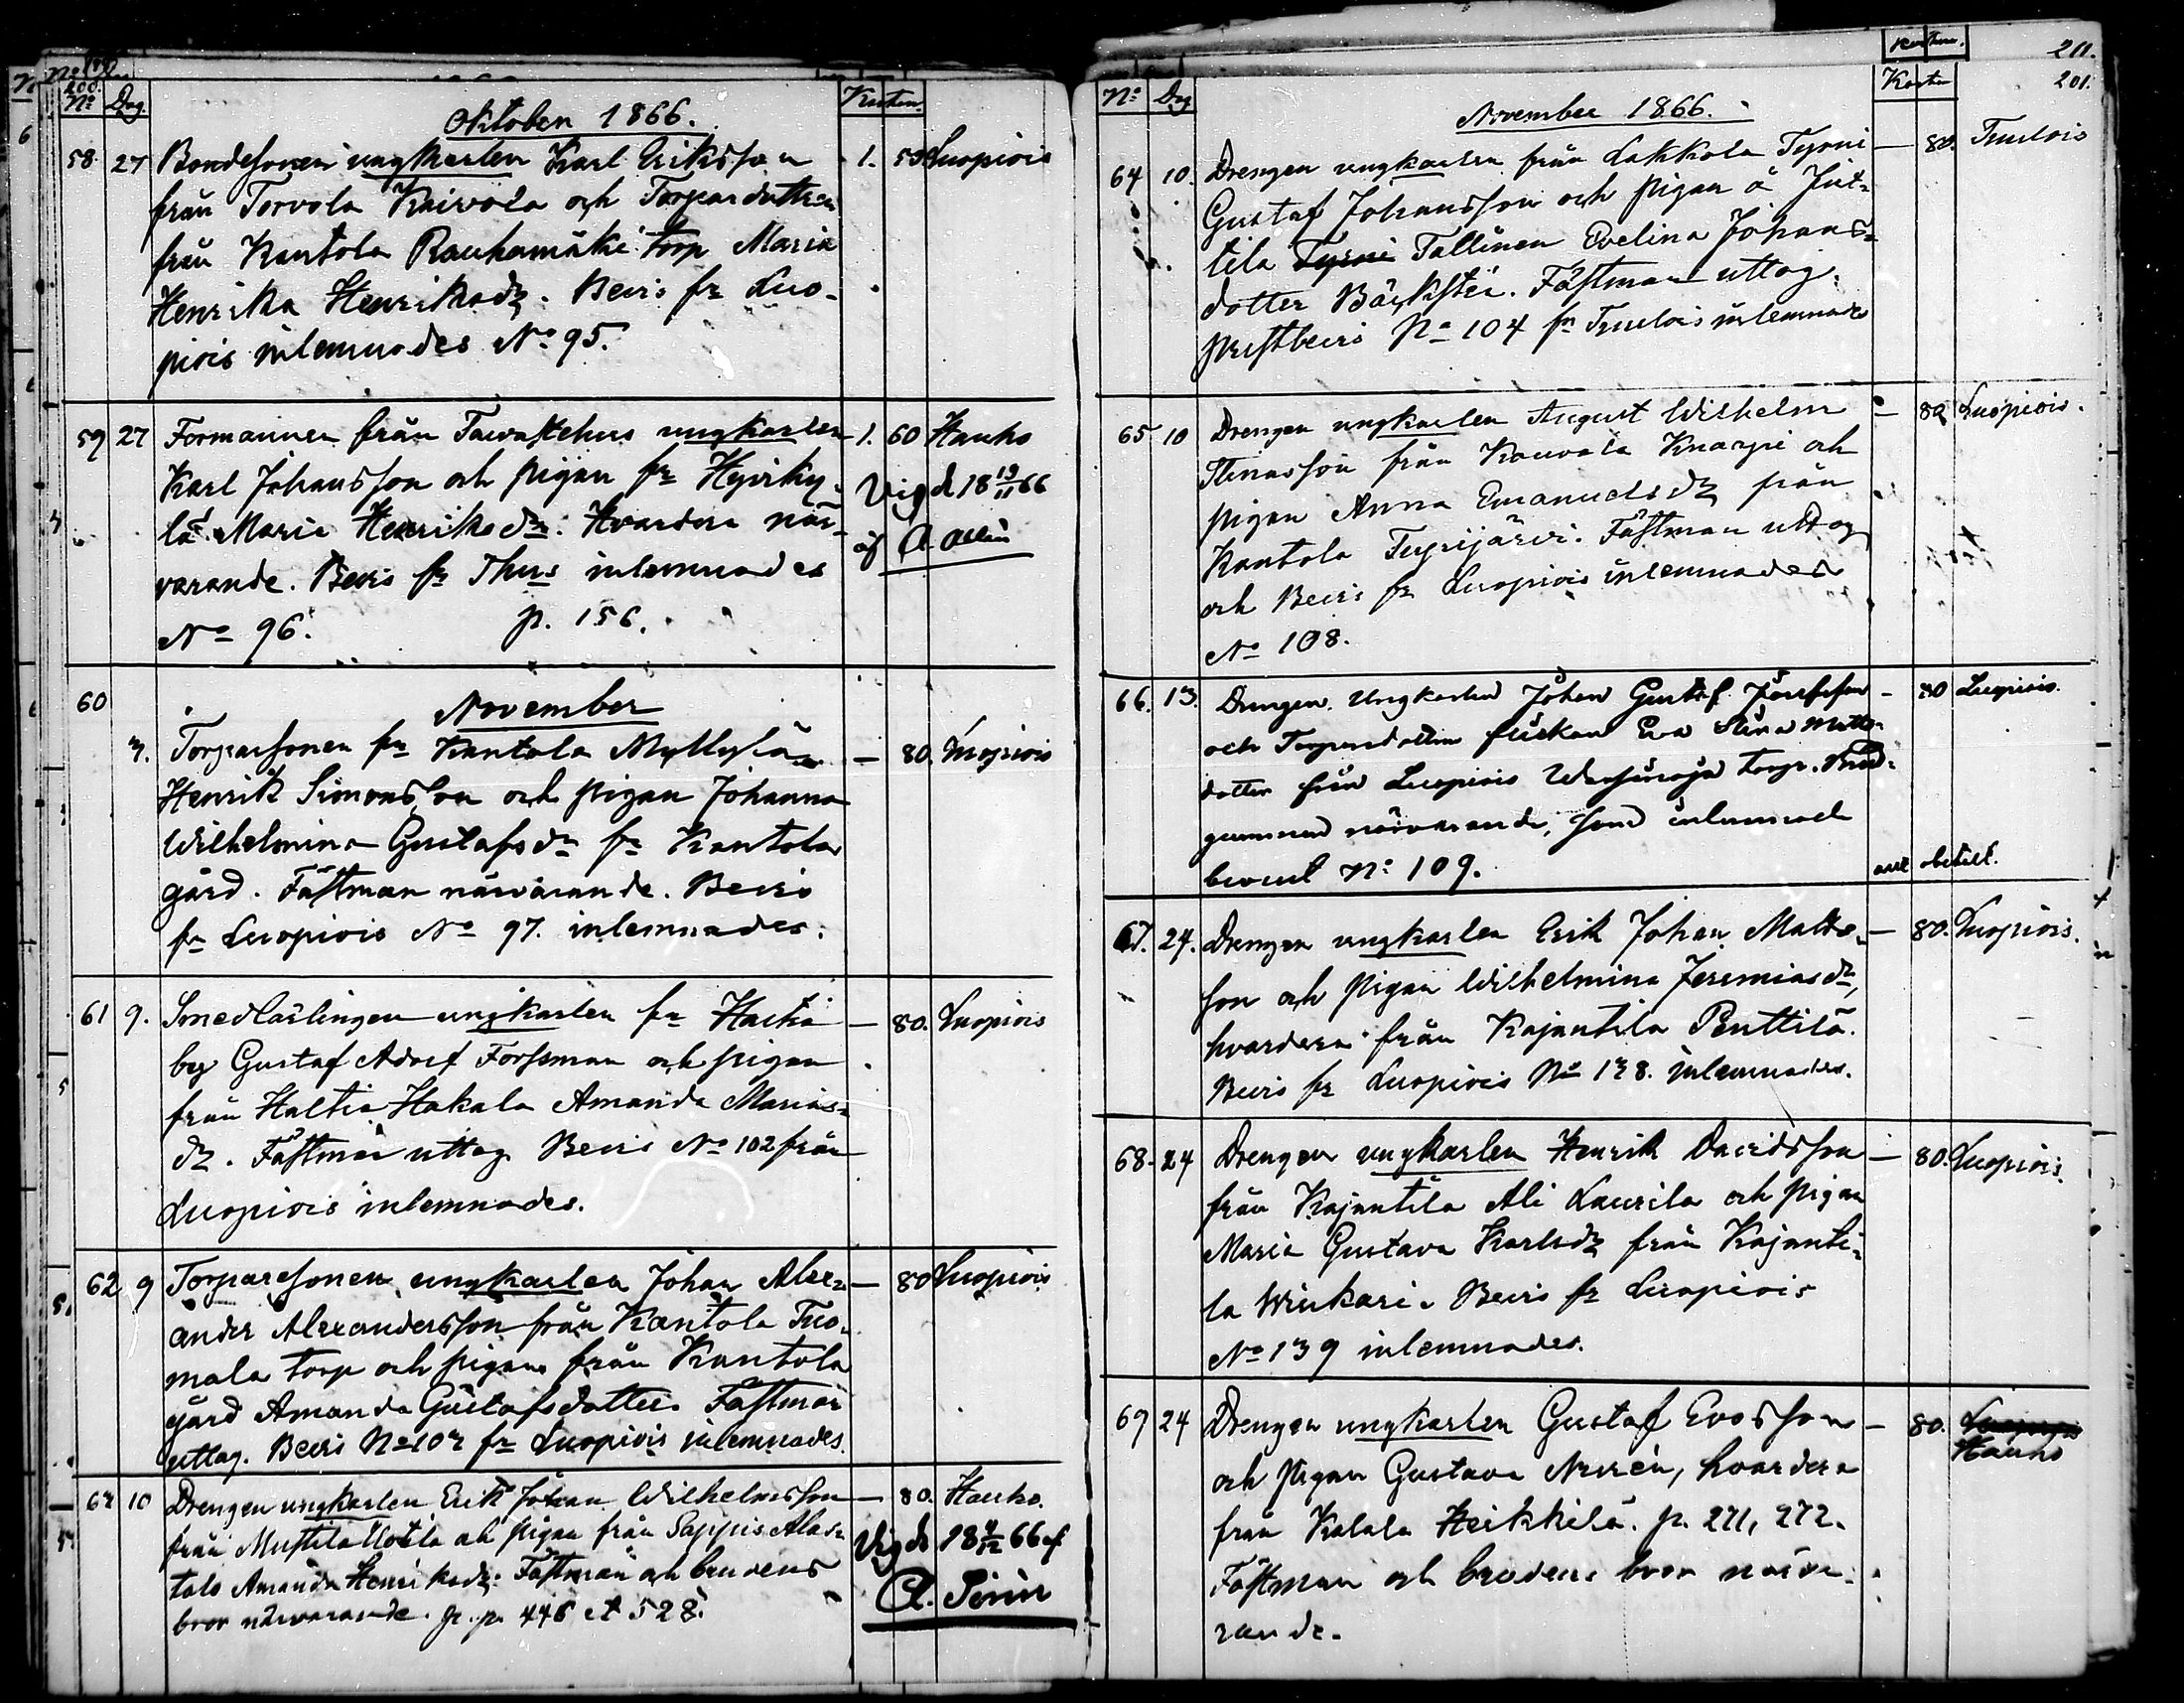 200.
No Dag. Kosten.
Oktober 1866.
58 27 Bondesonen ungkarlen Karl Eriksson 1. 50 Luopiois
från Torvola Kaivola och Torpardottren
från Kantola Rauhamäki Torp Maria
Henrika Henriksdr. Bevis fr Luo-
piois inlemnades No 95.
59 27 Formannen från Tawastehus ungkarlen 1. 60 Hauho
Karl Johansson och pigan fr Hyviky-
lä Maria Henriksdr. Hvardera när-
varande. Bevis fr Thus inlemnades
No 96. p. 156.
Vigd 18 19/11 66
af A.
60
November
3. Torparsonen fr Kantola Myllylä — 80. Luopiois
Henrik Simonsson och pigan Johanna
Wilhelmina Gustafsdr fr Kantola
gård. Fästman närvarande. Bevis
fr Luopiois No 97. inlemnades.
61 9. Smedlärlingen ungkarlen fr — 80. Luopiois
by Gustaf Adolf Forssman och pigan
från Haltia Hakala Amanda Marias-
dr. Fästmän uttog. Bevis No 102 från
Luopiois inlemnades.
62 9 Torparsonen ungkarlen Johan Alex- — 80 Luopiois
ander Alexandersson från Kantola Tuo-
mala torp och pigan från Kantola
gård Amanda Gustafsdotter. Fästman
uttog. Bevis No 103 fr Luopiois inlemnades.
63 10 Drengen ungkarlen Erik Johan Wilhelmsson — 80. Hauho.
från Mustila Uotila och pigan från Sappis Ala-
talo Amanda Henriksdr. Fästman och brudens
bror närvarande. p.p. 446 et 528.
Vigde 18 66 af
A.
211.
201.
No Dag Kosten
November 1866.
64 10. Drengen ungkarlen från Lakkola Tyrni — 80. Tuulois
Gustaf Johansson och pigan å Jut-
tila Tyrni Tallinen Evelina Johans-
dotter Bäckster. Fästman uttog.
prestbevis No 104 fr Tuulois inlemnades
65 10 Drengen ungkarlen August Wilhelm — 80 Luopiois.
Stinasson från Kouvala Knaapi och
pigan Anna Emanuelsdr från
Kantola Syrijärvi. Fästman uttog
och Bevis fr Luopiois inlemnades
No 108.
66. 13. Drengen Ungkarlen Johan Gustaf Josefsson — 80 Luopiois.
och Torpardottren flickan Eva Stina Matts-
dotter från Luopiois torp. Brud-
gummen närvarande, som inlemnade
beviset No 109.
allt betalt.
67. 24. Drengen ungkarlen Erik Johan Matts- — 80. Luopiois.
son och pigan Wilhelmina Jeremiasdr,
hvardera från Kajantila Penttilä.
Bevis fr Luopiois No 138. inlemnades.
68. 24 Drengen ungkarlen Henrik Davidsson — 80. Luopiois.
från Kajantila Ali Laurila och pigan
Maria Gustava Karlsdr från Kajanti-
la Wiukari. Bevis fr Luopiois
No 139 inlemnades.
69 24 Drengen ungkarlen Gustaf Evasson — 80. Luopiois
Hauho
och pigan Gustava Nurén, hvardera
från Kalala Heikkilä. p. 271, 272.
Fästman och brudens bror närva-
rande.